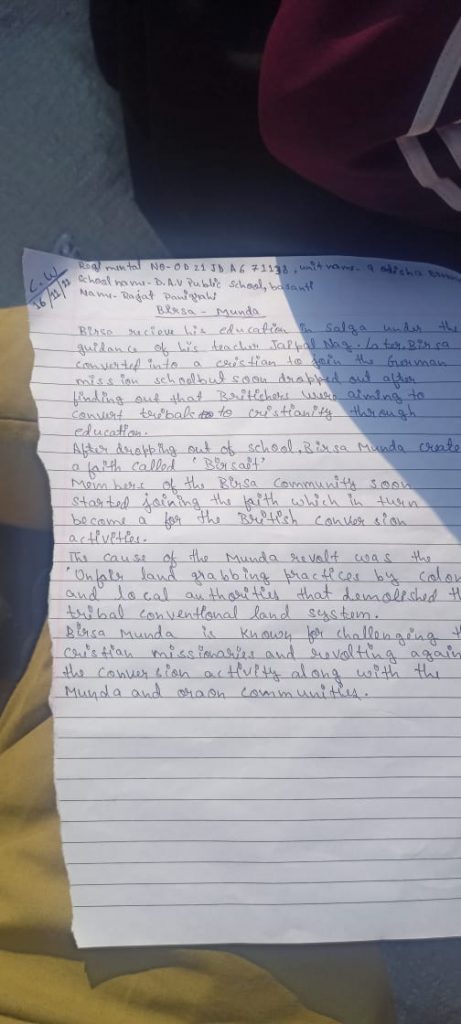 C.W
16/11/22
Regimental No-OD 21 JD A 671138, unit name - 9 odisha
School name - D.A.V Public School, basanti
Name - Rajat Panigrahi
Birsa - Munda
Birsa recieve his education in Salga under the
guidance of his teacher Jaipal Nag. Later, Birsa
converted into a cristian to join the German
mission school but soon drapped out after
finding out that Britishers were aiming to
convert tribals to cristianity through
education.
After dropping out of school, Birsa Munda create
a faith called 'Birsait'
Members of the Birsa Community soon
started joining the faith which in turn
become a for the British conversion
activities.
The cause of the Munda revolt was the
'Unfair land grabbing practices by colon
and local authorities that demolished th
tribal conventional land system.
Birsa Munda is known for challenging t
cristian missionaries and revolting again
the conversion activity along with the
Munda and oraon communities.